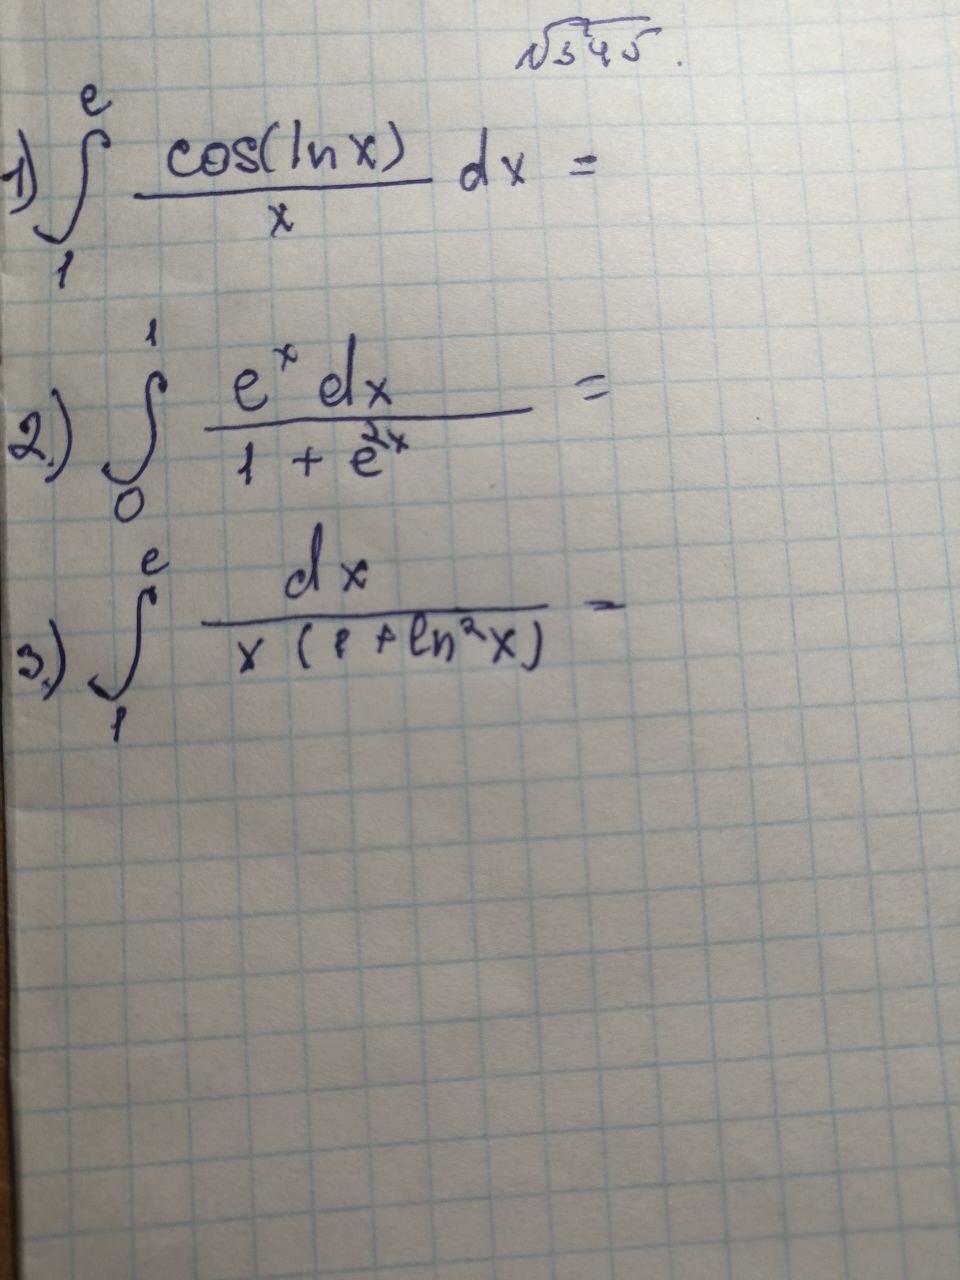 √345.
1) ∫₁ᵉ cos(ln x)/x dx =
2.) ∫₀¹ eˣ dx/(1 + e²ˣ) =
3.) ∫₁ᵉ dx/(x (1 + ln²x)) =